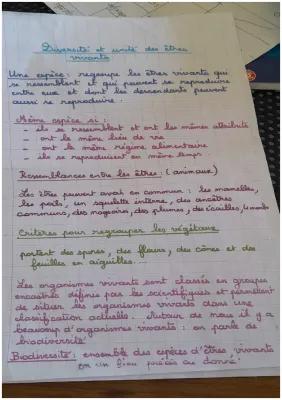 Diversité et unité des êtres
vivants
Une espèce : regroupe les êtres vivants qui
se ressemblent et qui peuvent se reproduire
entre eux et dont les descendants peuvent
aussi se reproduire.
Même espèce si :
- ils se ressemblent et ont les mêmes attributs
- ont le même lieu de vie
- ont le même régime alimentaire
- ils se reproduisent en même temps
Ressemblances entre les êtres : (animaux)
Les êtres peuvent avoir en commun : les mamelles,
les poils, un squelette interne, des ancêtres
communs, des nageoires, des plumes, des écailles,
Critères pour regrouper les végétaux
portent des spores, des fleurs, des cônes et des
feuilles en aiguilles...
Les organismes vivants sont classés en groupes
emboités définis par les scientifiques et permettent
de situer les organismes vivants dans une
classification actuelle. Autour de nous il y a
beaucoup d'organismes vivants : on parle de
biodiversité
Biodiversité : ensemble des espèces d'êtres vivants
en un lieu précis ou donné.